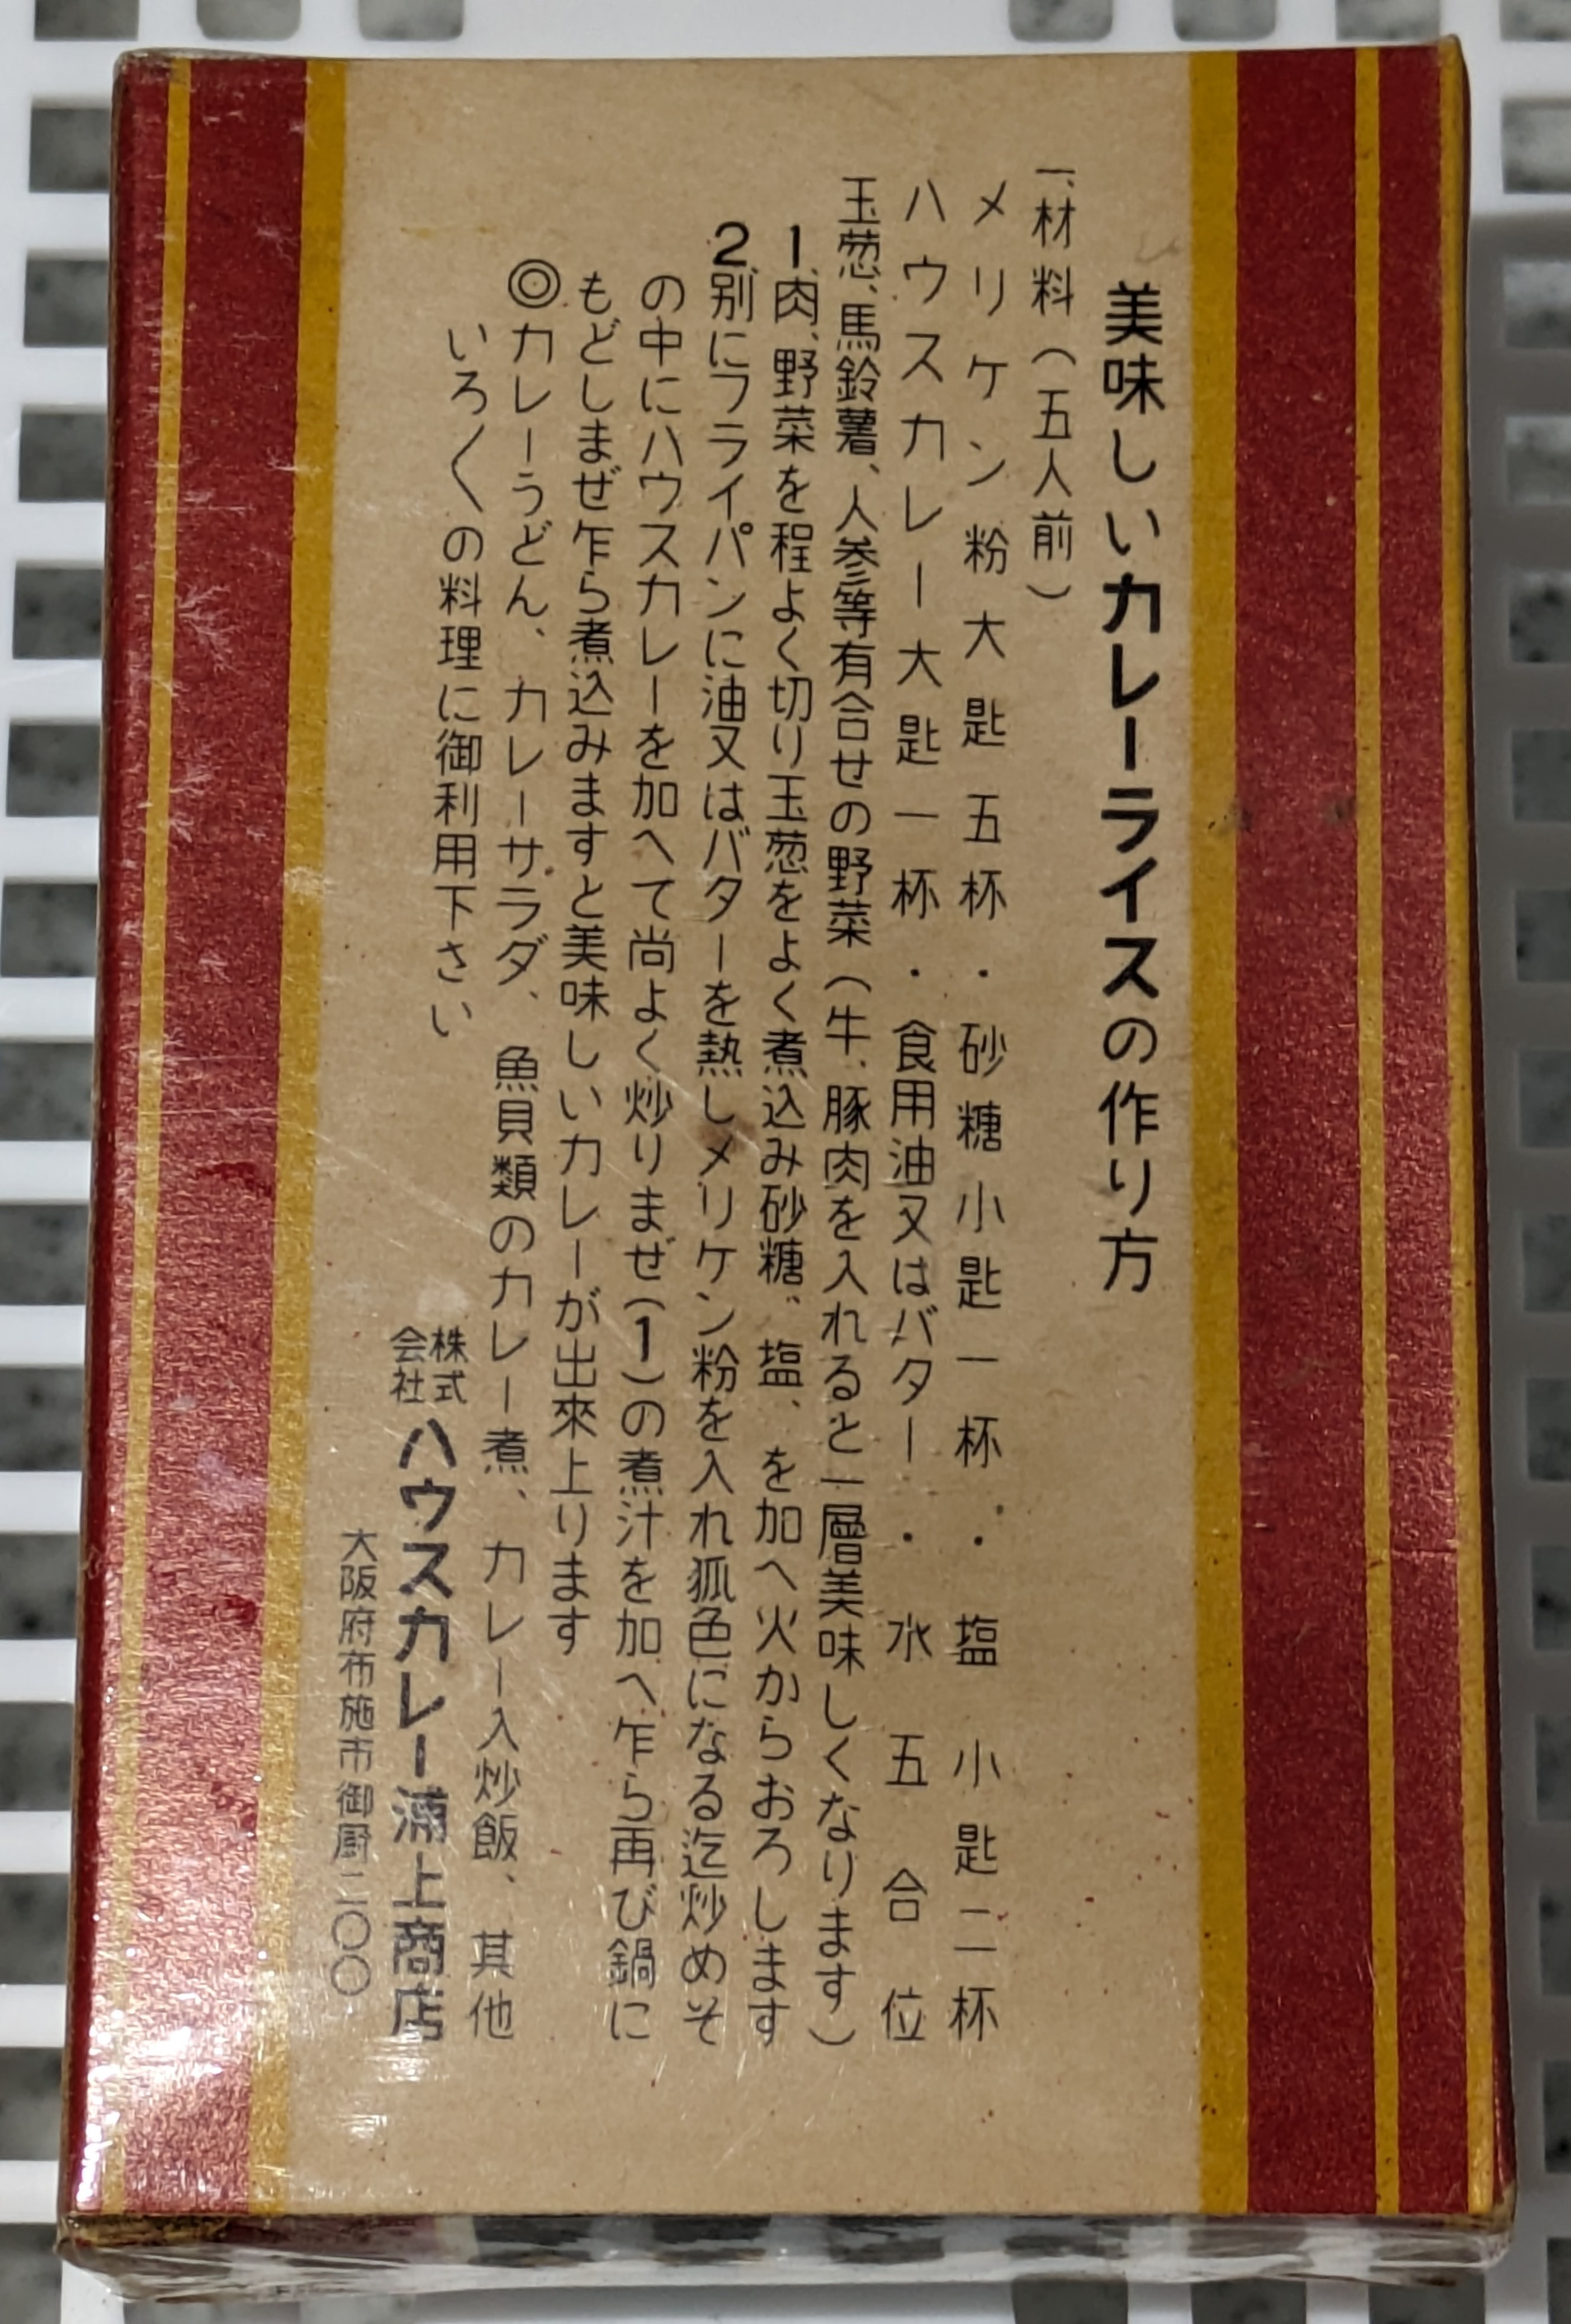 美味しいカレーライスの作り方
一、材料（五人前）
メリケン粉大匙五杯・砂糖小匙一杯・塩小匙二杯
ハウスカレー大匙一杯・食用油又はバター・水五合位
玉葱、馬鈴薯、人参等有合せの野菜（牛、豚肉を入れると一層美味しくなります）
1、肉、野菜を程よく切り玉葱をよく煮込み砂糖、塩、を加へ火からおろします
2、別にフライパンに油又はバターを熱しメリケン粉を入れ狐色になる迄炒めそ
の中にハウスカレーを加へて尚よく炒りまぜ(1)の煮汁を加へ乍ら再び鍋に
もどしまぜ乍ら煮込みますと美味しいカレーが出來上ります
◎カレーうどん、カレーサラダ、魚貝類のカレー煮、カレー入炒飯、其他
いろ〱の料理に御利用下さい
株式会社ハウスカレー浦上商店
大阪府布施市御厨二〇〇